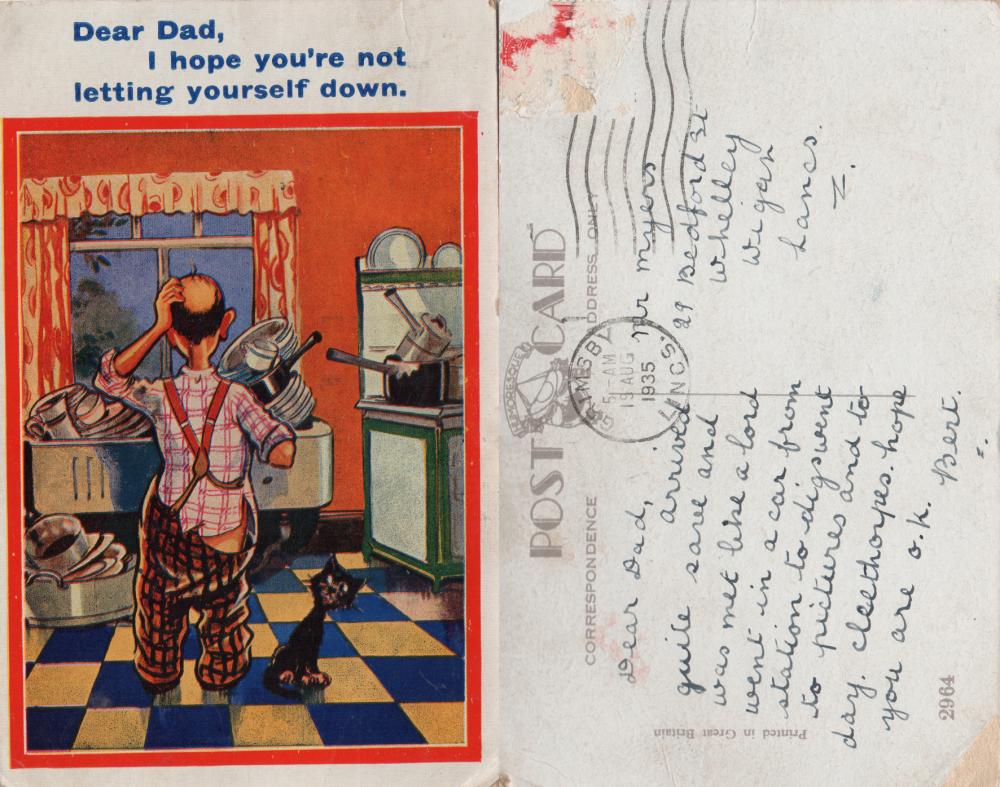 Dear Dad,
I hope you're not
letting yourself down.
POST CARD
CORRESPONDENCE
ADDRESS ONLY
GRIMSBY
5-AM
19 AUG
1935
LINCS.
Dear Dad,
arrived
quite safe and
was met like a lord
went in a car from
station to digs went
to pictures and to
day. cleethorpes. hope
you are o.k.
Bert.
Mr Myers
29 Bedford St
Whelley
Wigan
Lancs.
Printed in Great Britain
2964